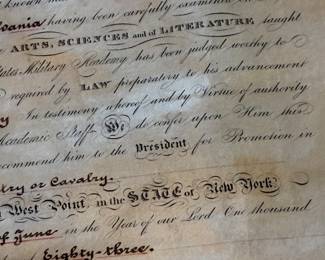 vania having been carefully examined on
ARTS, SCIENCES and of LITERATURE taught
States Military Academy has been judged worthy to
required by LAW preparatory to his advancement
In testimony whereof and by Virtue of authority
Academic Staff We do confer upon Him this
recommend him to the President for Promotion in
try or Cavalry.
West Point, in the STATE of New York
of June in the Year of our Lord One thousand
Eighty-three.